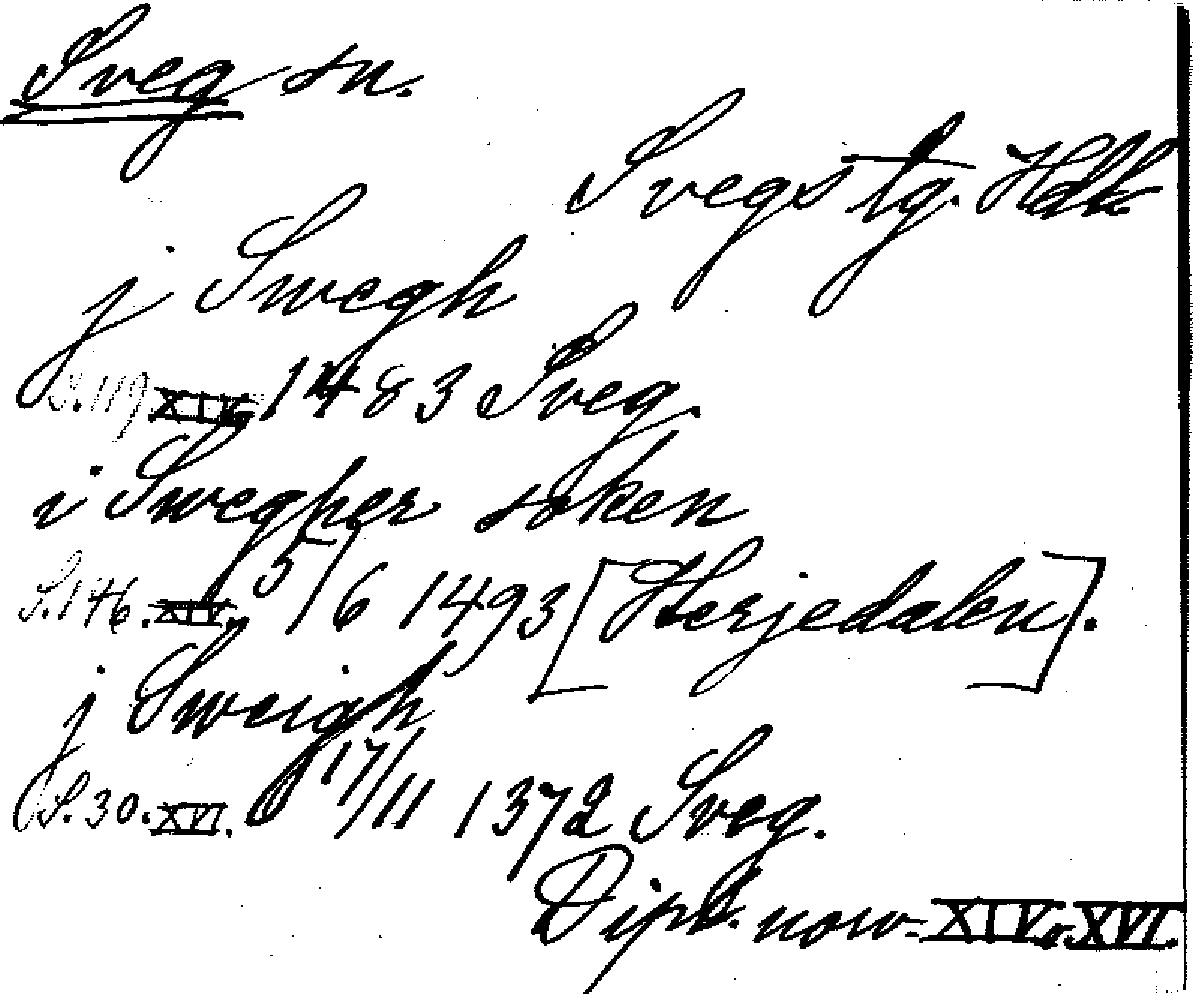 Sveg sn.
Svegs tg. Hdl.
j Swegh
S. 119 XIV. 1483 Sveg.
i Swegher soken
S. 146. XIV. 5/6 1493 [Herjedalen].
j Sweigh
S. 30. XVI. 17/11 1372 Sveg.
Dipl. norv. XIV o. XVI.